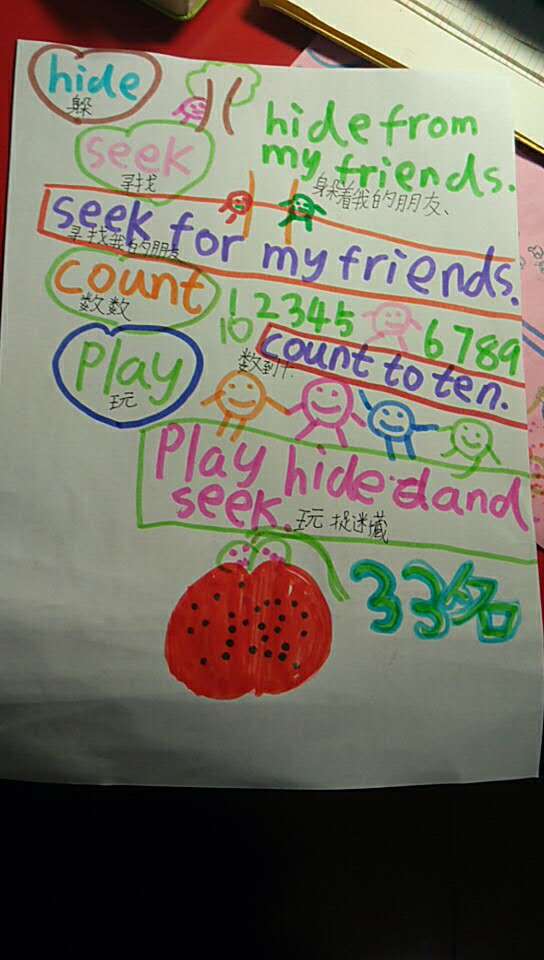 hide
躲
hide from
my friends.
躲着我的朋友、
seek
寻找
seek for my friends.
寻找我的朋友
count
数数
1 2345
6789
10
count to ten.
数到十
play
玩
Play hide and
seek.
玩捉迷藏
33名